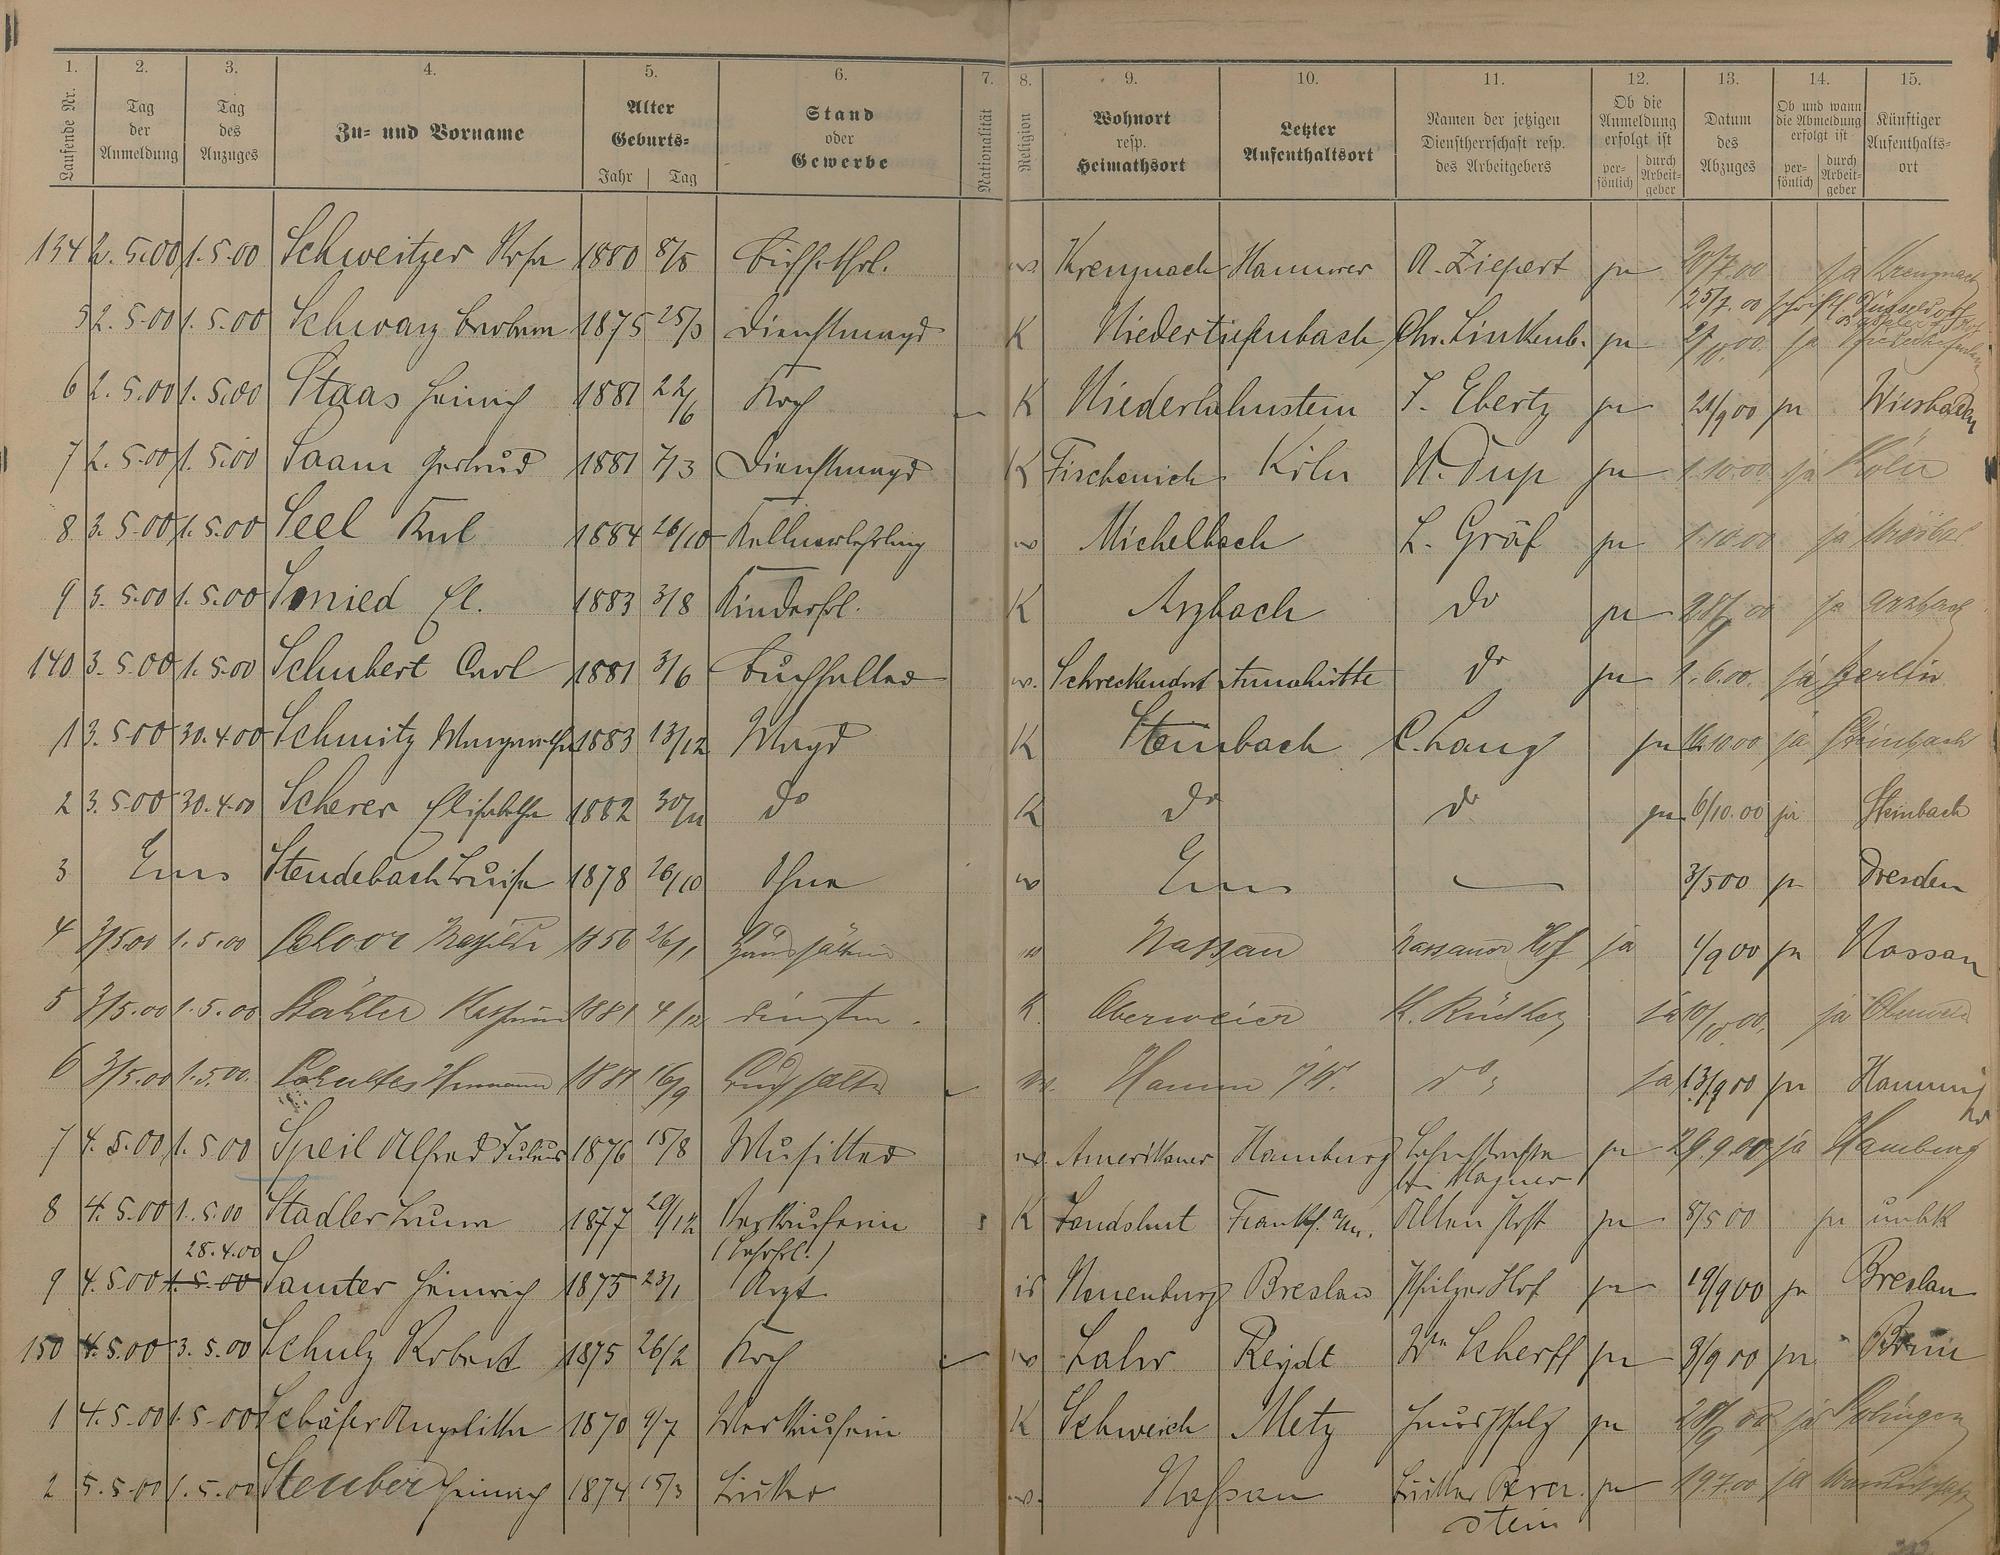 1. 2. 3. 4. 5. 6. 7. 8. 9. 10. 11. 12. 13. 14. 15.
Laufende Nr. Tag der Anmeldung Tag des Anzuges Zu- und Vorname Alter Geburts- Jahr Tag Stand oder Gewerbe Nationalität Religion Wohnort resp. Heimathsort Letzter Aufenthaltsort Namen der jetzigen Dienstherrschaft resp. des Arbeitgebers Ob die Anmeldung erfolgt ist persönlich durch Arbeitgeber Datum des Abzuges Ob und wann die Abmeldung erfolgt ist persönlich durch Arbeitgeber Künftiger Aufenthaltsort
134 2.5.00 1.5.00 Schweitzer Rosa 1880 8/5 Büffetfrl. Kreuznach Hannover A. Ziepert ja 20/7.00 ja Kreuznach
25/7.00 schriftl Düsseldorf
5 2.5.00 1.5.00 Schwarz Barbara 1875 25/3 Dienstmagd K Niedertiefenbach Chr. Linkenb. ja ja
6 2.5.00 1.5.00 Staas Heinrich 1881 22/6 Koch K Niederlahnstein J. Ebertz ja 21/9 00 ja Wiesbaden
7 2.5.00 1.5.00 Saam Gertrud 1881 7/3 Dienstmagd K Fischenich Köln W. Dup ja 1.10.00 ja Köln
8 3.5.00 1.5.00 Seel Karl 1884 26/10 Kellnerlehrling Michelbach L. Gräf ja 1.10.00 ja
9 3.5.00 1.5.00 Smied El. 1883 3/8 Kinderfrl. K Arzbach do ja 28/9 00 ja Arzbach
140 3.5.00 1.5.00 Schubert Carl 1881 3/6 Buchhalter Schreckendorf Annahütte do ja 1.6.00. ja Berlin
1 3.5.00 30.4.00 Schmitz Margaretha 1883 13/12 Magd K Steinbach C. Lang ja 16.10.00 ja Steinbach
2 3.5.00 30.4.00 Scherer Elisabetha 1882 30/11 do K do do ja 6/10.00 ja Steinbach
3 Ems Stendebach Luise 1878 26/10 Ohne Ems — 3/5 00 ja Dresden
4 3/5.00 1.5.00 1856 26/1 Nassau Nassauer Hof ja 1/9 00 ja Nassau
5 3/5.00 1.5.00 Stähler 1881 4/12 K. Oberweier K. Rücker ja 10/10 00. ja Oberweier
6 3/5.00 1.5.00. Schultes Hermann 1881 16/9 Buchhalter Hamm i/W. do ja 13/9 00 ja Hamm i/W
7 4.5.00 1.5.00 Speil Alfred Julius 1876 15/8 Musiker Amerikaner Hamburg Lahnstrasse ja 29.9.00 ja Hamburg
bei Wagner
8 4.5.00 1.5.00 Stadler 1877 29/12 Verkäuferin K Landshut Frankf. a/M. Alten Post ja 8/5 00 ja unbk
28.4.00 (Lehrfrl.)
9 4.5.00 1.5.00 Samter Heinrich 1875 23/1 Arzt is Neuenburg Breslau Pfälzer Hof ja 19/9 00 ja Breslau
150 4.5.00 3.5.00 Schulz Robert 1875 26/2 Koch Lahr Reydt Wwe Scherff ja 3/9 00 ja
1 4.5.00 1.5.00 Schäfer Angelika 1870 9/7 Verkäuferin K Schweich Metz Haus Pfalz ja 28/9 00 ja
2 5.5.00 1.5.00 Steuber Heinrich 1874 15/3 Bäcker Nassau Bäcker Bever ja 19.7.00 ja Wanderschaft
stein